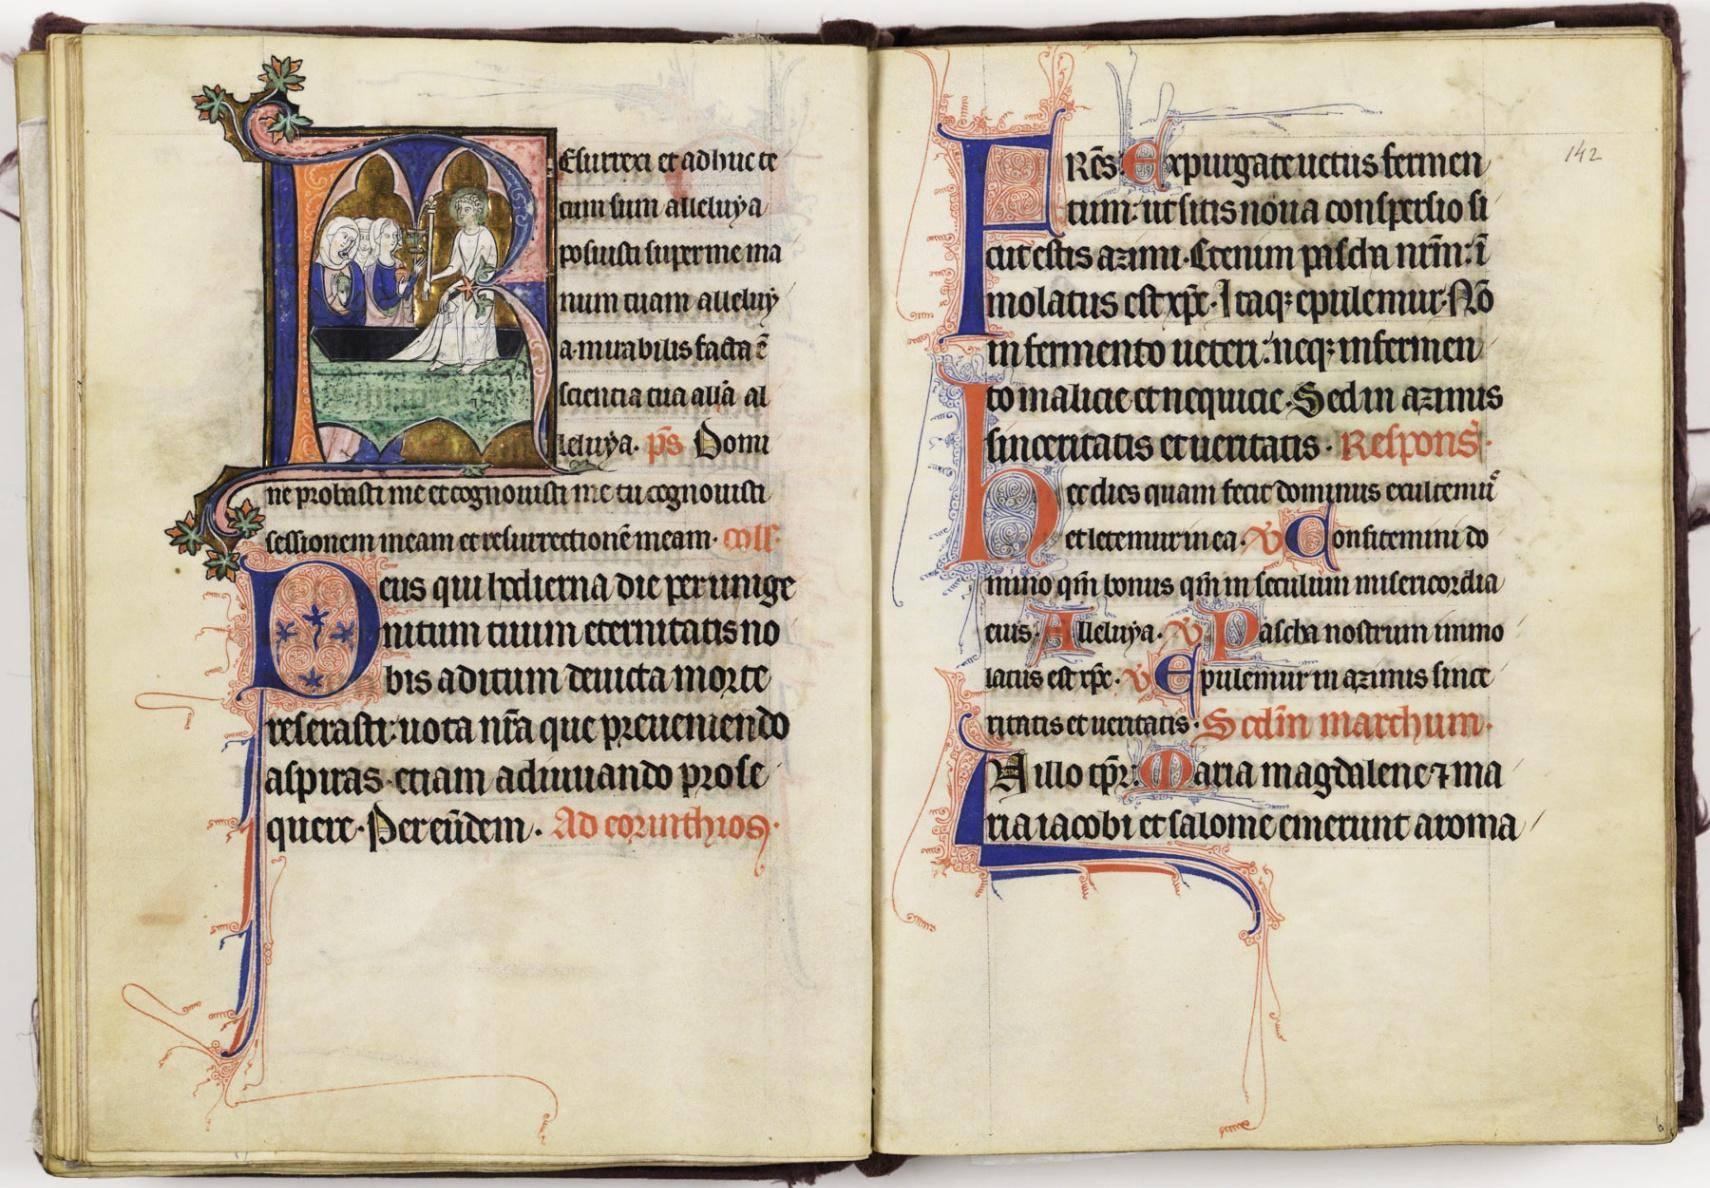 Resurrexi et adhuc te
cum sum alleluya
posuisti super me ma
num tuam alleluy
a. mirabilis facta ẽ
scientia tua all̃a al
leluya. p̃s Domi
ne probasti me et cognouisti me tu cognouisti
sessionem meam et resurrectionẽ meam. coll̃.
Deus qui hodierna die per unige
nitum tuum eternitatis no
bis aditum deuicta morte
reserasti: uota nr̃a que preueniendo
aspiras. etiam adiuuando prose
quere. Per eũdem. Ad corinthios.
142
FRẽs. Expurgate uetus fermen
tum: ut sitis noua conspersio si
cut estis azimi. Etenim pascha nrm̃: ĩ
molatus est xp̃c. Itaq; epulemur. Nõ
in fermento ueteri: neq; in fermen
to malicie et nequicie. Sed in azimis
sinceritatis et ueritatis. Respons̃.
hec dies quam fecit dominus exultemuꝰ
et letemur in ea. V̷ Confitemini do
mino qm̃ bonus qm̃ in seculum misericordia
eius. Alleluya. V̷ Pascha nostrum immo
latus est xp̃c. V̷ Epulemur in azimis since
ritatis et ueritatis. Sedĩn marchum.
IN illo tp̃r: Maria magdalene ⁊ ma
ria iacobi et salome emerunt aroma